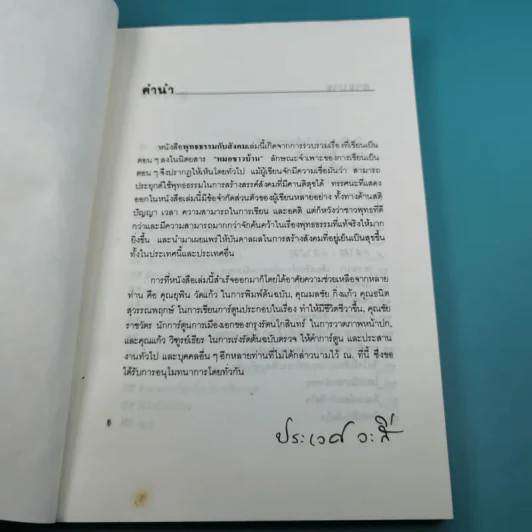 คำนำ
หนังสือพุทธธรรมกับสังคมเล่มนี้เกิดจากการรวบรวมเรื่องที่เขียนเป็น
ตอน ๆ ลงในนิตยสาร "หมอชาวบ้าน" ลักษณะจำเพาะของการเขียนเป็น
ตอน ๆ จึงปรากฏให้เห็นโดยทั่วไป แม้ผู้เขียนจักมีความเชื่อมั่นว่า สามารถ
ประยุกต์ใช้พุทธธรรมในการสร้างสรรค์สังคมที่มีศานติสุขได้ ทรรศนะที่แสดง
ออกในหนังสือเล่มนี้มีข้อจำกัดส่วนตัวของผู้เขียนหลายอย่าง ทั้งทางด้านสติ
ปัญญา เวลา ความสามารถในการเขียน และอคติ แต่ก็หวังว่าชาวพุทธที่ดี
กว่าและมีความสามารถมากกว่าจักค้นคว้าในเรื่องพุทธธรรมที่แท้จริงให้มาก
ยิ่งขึ้น และนำมาเผยแพร่ให้บันดาลผลในการสร้างสังคมที่อยู่เย็นเป็นสุขขึ้น
ทั้งในประเทศนี้และประเทศอื่น
การที่หนังสือเล่มนี้สำเร็จออกมาก็โดยได้อาศัยความช่วยเหลือจากหลาย
ท่าน คือ คุณยุพิน วัดแก้ว ในการพิมพ์ต้นฉบับ, คุณมลชัย กิ่งแก้ว คุณธนิต
สุวรรณพฤกษ์ ในการเขียนการ์ตูนประกอบในเรื่อง ทำให้มีชีวิตชีวาขึ้น, คุณชัย
ราชวัตร นักการ์ตูนการเมืองเอกของกรุงรัตนโกสินทร์ ในการวาดภาพหน้าปก,
และคุณแก้ว วิฑูรย์เธียร ในการเร่งรัดต้นฉบับตรวจ ให้คำการ์ตูน และประสาน
งานทั่วไป และบุคคลอื่น ๆ อีกหลายท่านที่ไม่ได้กล่าวนามไว้ ณ. ที่นี้ ซึ่งขอ
ได้รับการอนุโมทนาการโดยทั่วกัน
ประเวศ วะสี
6